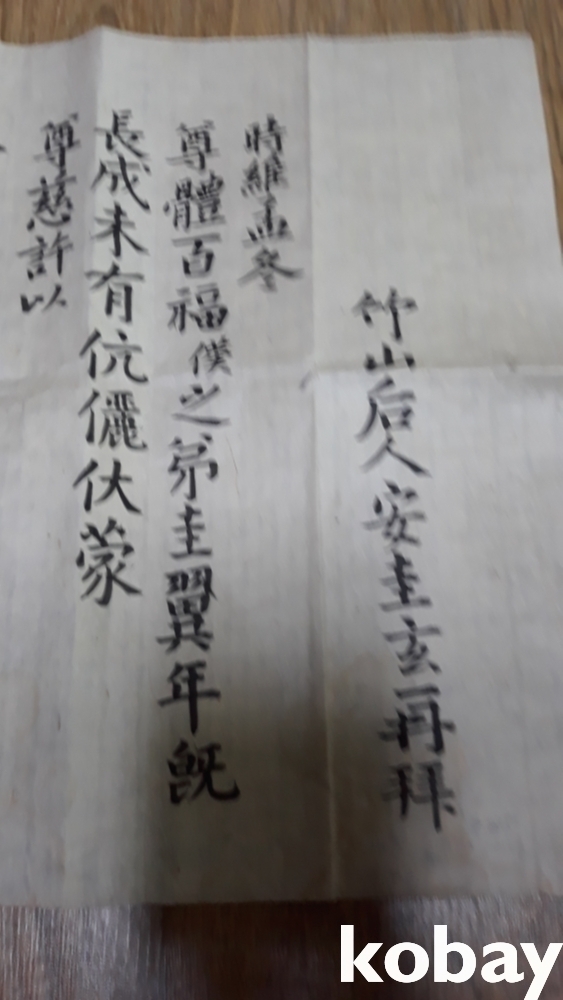 竹山后人安圭玄再拜
時維孟冬
尊體百福僕之弟圭翼年旣
長成未有伉儷伏蒙
尊慈許以
kobay